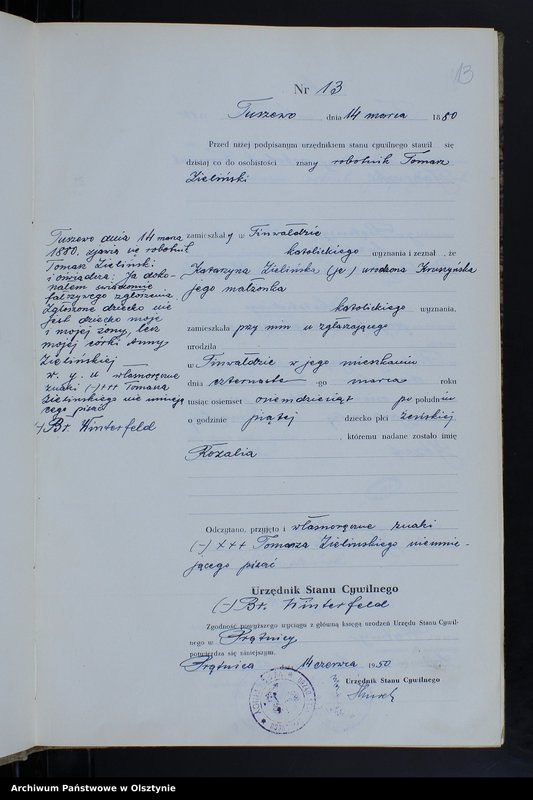 13
Nr 13
Tuszewo dnia 14 marca 1880
Przed niżej podpisanym urzędnikiem stanu cywilnego stawił się
dzisiaj co do osobistości znany robotnik Tomasz
Zieliński
zamieszkały w Tinwałdzie
katolickiego wyznania i zeznał, że
Katarzyna Zielińska (ja) urodzona Kruszyńska
jego małżonka
katolickiego wyznania,
zamieszkała przy nim u zgłaszającego
urodziła
w Tinwałdzie w jego mieszkaniu
dnia czternaste -go marca roku
tysiąc osiemset osiemdziesiąt po południu
o godzinie piątej dziecko płci żeńskiej
, któremu nadane zostało imię
Rozalia
Tuszewo dnia 14 marca
1880. zjawił się robotnik
Tomasz Zieliński
i oświadcza: Ja doko-
nałem świadomie
fałszywego zgłoszenia.
Zgłoszone dziecko nie
jest dziecko moje
i mojej żony, lecz
mojej córki Anny
Zielińskiej
w. g. u. własnoręczne
znaki (-)+++ Tomasza
Zielińskiego nie umieją
cego pisać
(-) Br. Winterfeld
Odczytano, przyjęto i własnoręczne znaki
(-) +++ Tomasza Zielińskiego nieumie-
jącego pisać
Urzędnik Stanu Cywilnego
(-) Br. Winterfeld
Zgodność powyższego wyciągu z główną księgą urodzeń Urzędu Stanu Cywil-
nego w Prątnicy
potwierdza się niniejszym.
Prątnica dnia czerwca 1950
Urzędnik Stanu Cywilnego
Archiwum Państwowe w Olsztynie